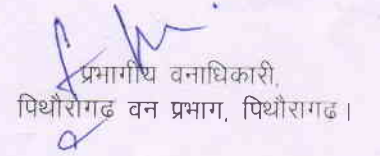 प्रभागीय वनाधिकारी,
पिथौरागढ वन प्रभाग, पिथौरागढ।